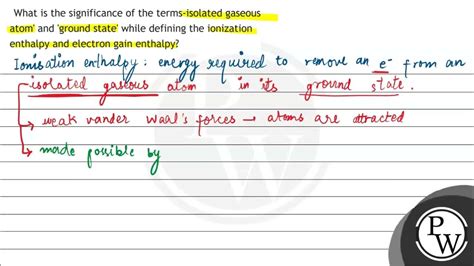 What is the significance of the terms-isolated gaseous
atom' and 'ground state' while defining the ionization
enthalpy and electron gain enthalpy?
Ionisation enthalpy : energy required to remove an e⁻ from an
isolated gaseous atom in its ground state.
→ weak vander Waal's forces → atoms are attracted
→ made possible by
P
W
P
W